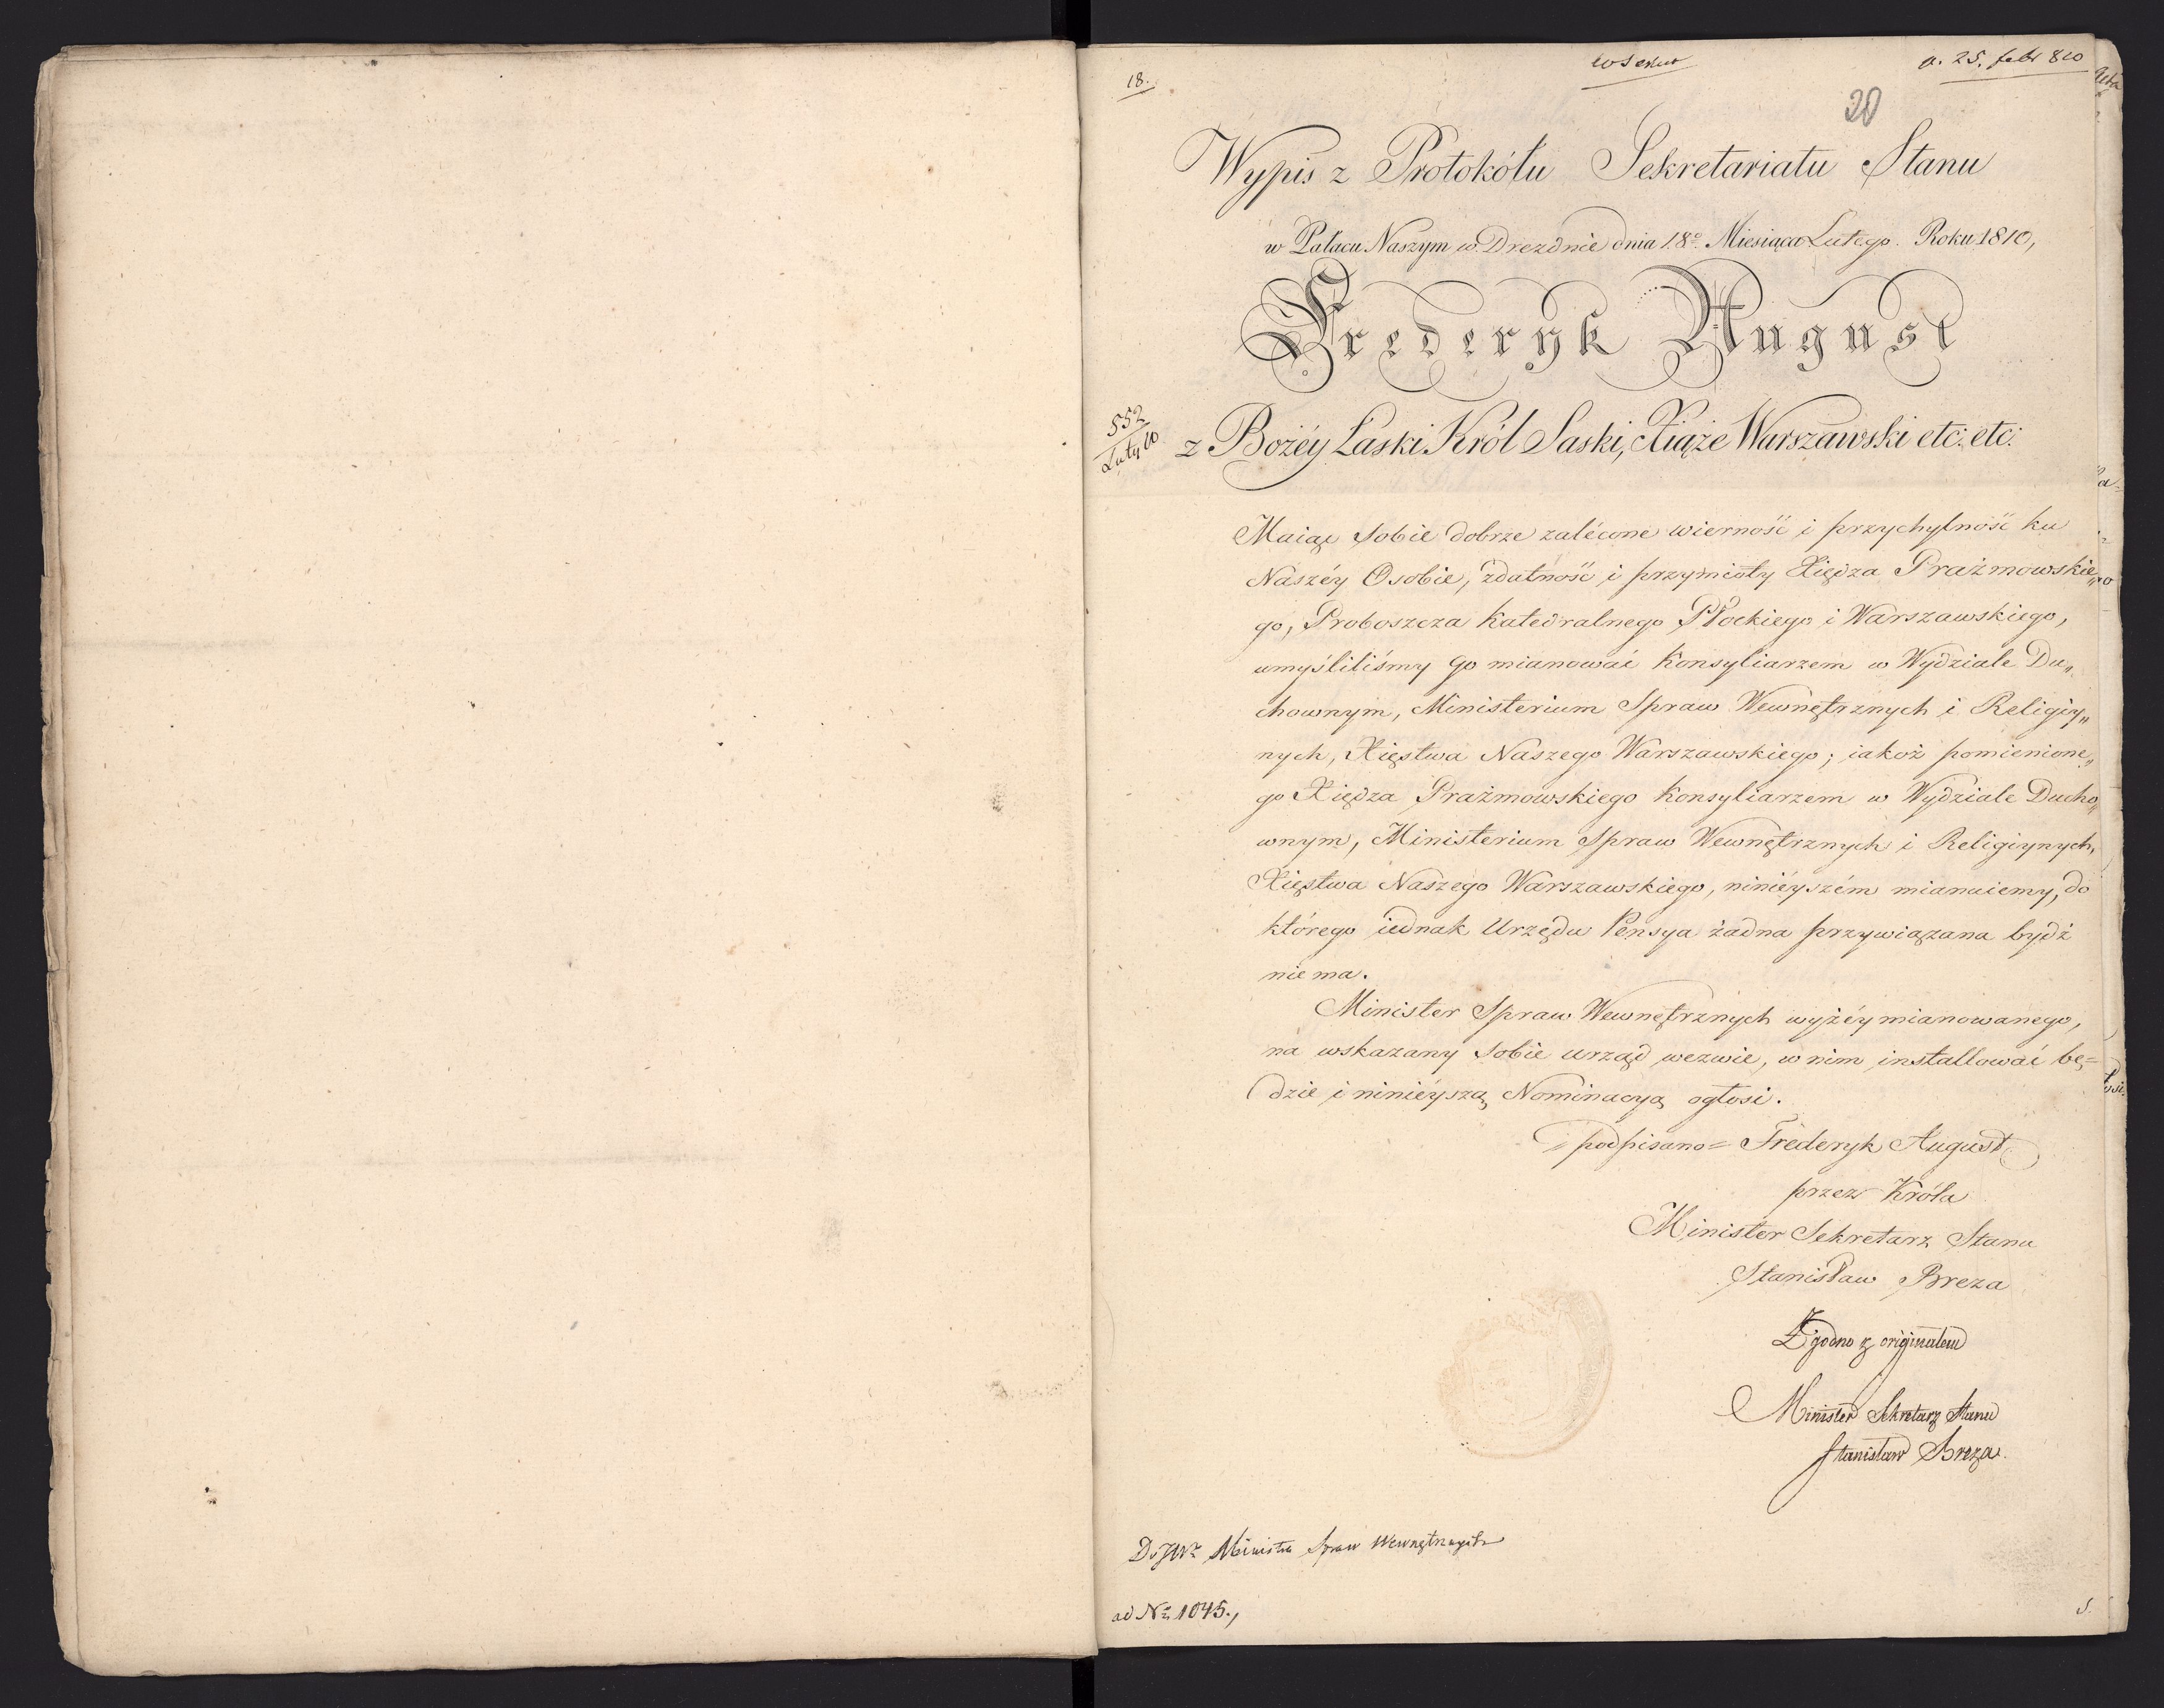 18.
a. 25. febr 810
20
Wypis z Protokółu Sekretariatu Stanu
w Pałacu Naszym w Dreznie dnia 18º. Miesiąca Lutego. Roku 1810,
Frederyk August
552
Luty 10
z Bożéy Łaski Król Saski, Xiąże Warszawski etc: etc:
Maiąc sobie dobrze zalécone wierność i przychylność ku
Naszéy Osobie, zdatność i przymioty Xiędza Prażmowskie„
go, Proboszcza Katedralnego Płockiego i Warszawskiego,
umyśliliśmy go mianować Konsyliarzem w Wydziale Du„
chownym, Ministerium Spraw Wewnętrznych i Religiy„
nych, Xięstwa Naszego Warszawskiego; iakoż pomienione„
go Xiędza Prażmowskiego Konsyliarzem w Wydziale Ducho„
wnym, Ministerium Spraw Wewnętrznych i Religiynych,
Xięstwa Naszego Warszawskiego, ninieyszém mianuiemy, do
którego iednak Urzędu Pensya żadna przywiązana bydź
nie ma.
Minister Spraw Wewnętrznych wyżéy mianowanego,
na wskazany sobie urząd wezwie, w nim installować bę=
dzie i ninieyszą Nominacyą ogłosi.
podpisano = Frederyk August
przez Króla
Minister Sekretarz Stanu
Stanisław Breza
Zgodno z originałem
Minister Sekretarz Stanu
Stanisław Breza.
Do JWº Ministra Spraw Wewnętrznych
ad Nº 1045.,